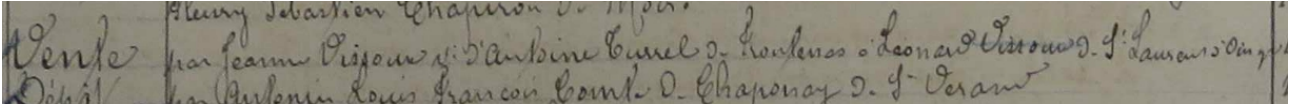 Fleury Sébastien Chapiron de Moiré
Vente par Jeanne Vissoux Ve d'Antoine Turrel de Frontenas à Léonard Vissoux de St Laurent d'Oingt
Dépôt par Antonin Louis François Comte de Chaponay de St Verand